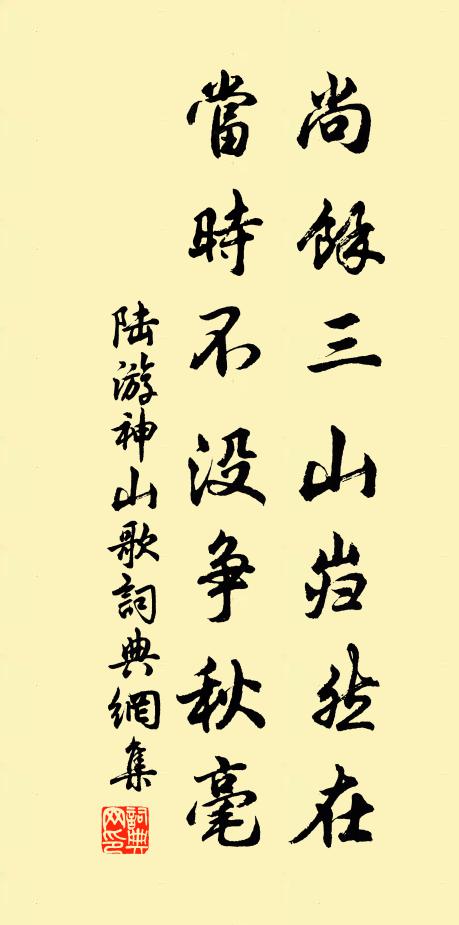 尚餘三山岿然在
當時不没争秋毫
陆游神山歌詞典網集
詞典
网印